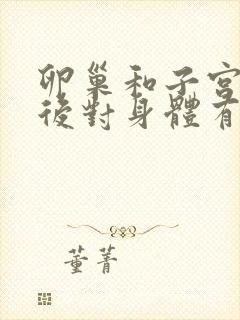 卵巢和子宮
後對身體有
董菁